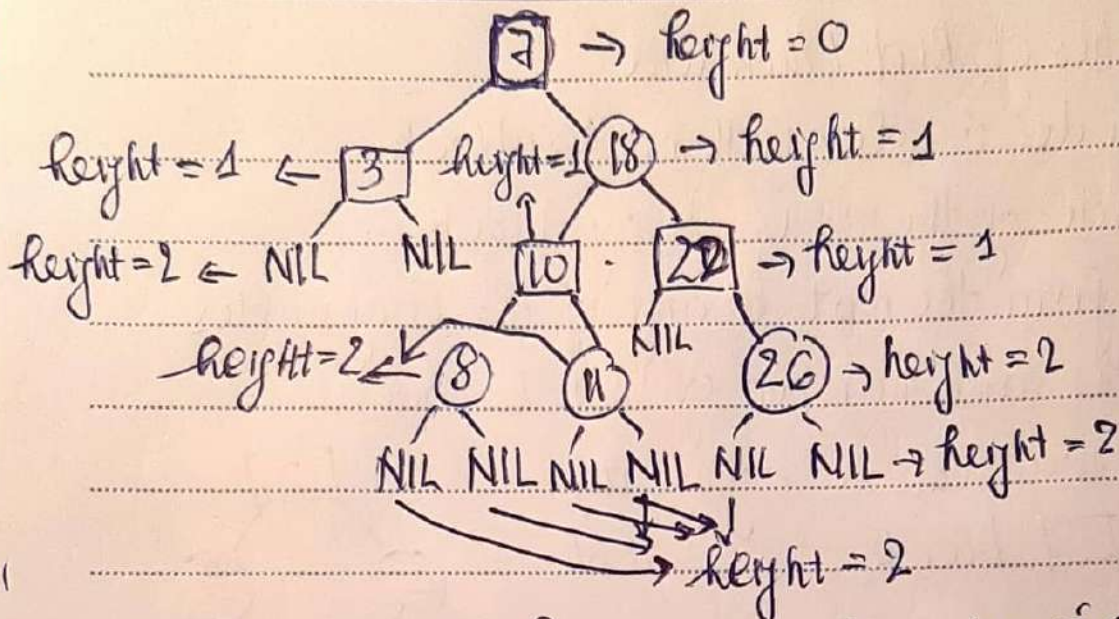 7 → height = 0
height = 1 ← 3 height = 1 18 → height = 1
height = 2 ← NIL NIL 10 22 → height = 1
NIL
height = 2 ← 8 11 26 → height = 2
NIL NIL NIL NIL NIL NIL → height = 2
height = 2